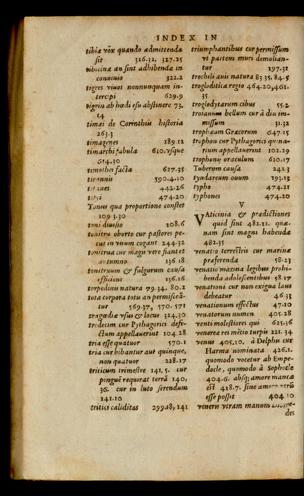 INDEX IN
tibiæ vox quando admittenda
sit 316.12. 327.25
tibicinæ an sint adhibendæ in
conuiuio 322.2
tigres viuos nonnunquam in-
terci 629.9
tigrin ab hœdi esu abstinere 73.
14
timai de Corinthiis historia
263.3
timagenes 189.12
timarchi fabula 610.vsque
614.30
timothei facta 627.35
590.4.10
442.26
474.20
qua proportione constet
109 3.30
toni diuisio 208.6
tonitru oborto cur pastores pe-
cus in vnum cogant 244.32
tonitrua cur magis vere fiant et
autumno 136.18
tonitruum & fulgurum causa
efficiens 136.16
torpedinis natura 79.34. 80.2
tota corpora totu an permiscea-
tur 569.37, 570. 571
tragœdiæ vsus & locus 324.30
tredecim cur Pythagorici defi-
ctum appellauerint 104.28
tria esse quatuor 570.1
tria cur bibantur aut quinque,
non quatuor 228.17
triticum trimestre 141.5. cur
pinguē requirat terrā 140,
36. cur in luto serendum
141.10
tritici caliditas 299.28, 141
triumphantibus cur permissum
vt partem muri demolian-
tur 297.31
trochili auis natura 83.35. 84.5
troglodítica regio 464.20,461.
35
troglodytarum cibus 55.2
troianum bellum cur à diis im-
missum 31.32
trophæum Græcorum 647.15
trophon cur Pythagorici quina-
rium appellauerint 102.29
trophonij oraculum 610.17
Tuberum causa 242.3
tyndareum ouum 193.15
typho 474.21
typhon 474.20
V
VAticinia & prædictiones
quid sint 482.21. quæ-
nam sint magni habendæ
482.35
venatio terrestris cur marinæ
præferenda 58.23
venatio maxima legibus prohi-
benda adolescentibus 58.17
venationi cur non exigua laus
debeatur 46.33
venationum effectus 47.10
venatorum numen 405.28
venti molestiores qui 625.36
venereæ res mitto turpia 221.34
venus 405.10. à Delphis cur
Harma nominata 426.1.
quomodo vocetur ab Empe-
docle, quomodo à Sophocle
404.6. absq; amore manca
est 418.7. sine amore
esse possit 404.10
veneru veram
des